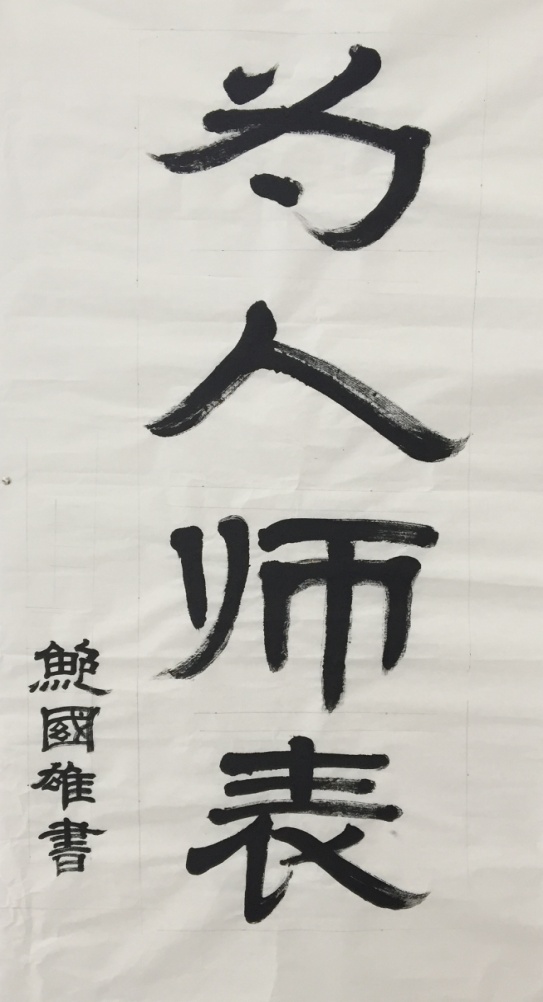 为人师表
鲍國雄書